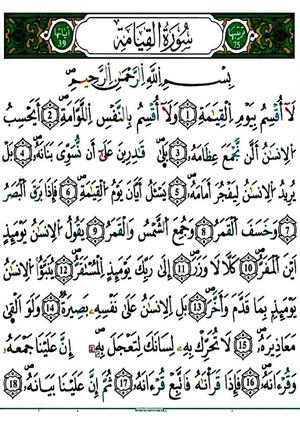 ترتيبها 75 سُورَةُ القِيَامَة آياتها 39
بِسْمِ اللَّهِ الرَّحْمَٰنِ الرَّحِيمِ
لَآ أُقْسِمُ بِيَوْمِ الْقِيَٰمَةِ ﴿1﴾ وَلَآ أُقْسِمُ بِالنَّفْسِ اللَّوَّامَةِ ﴿2﴾ أَيَحْسِبُ
الْإِنسَٰنُ أَلَّن نَّجْمَعَ عِظَامَهُۥ ﴿3﴾ بَلَىٰ قَٰدِرِينَ عَلَىٰٓ أَن نُّسَوِّىَ بَنَانَهُۥ ﴿4﴾ بَلْ
يُرِيدُ الْإِنسَٰنُ لِيَفْجُرَ أَمَامَهُۥ ﴿5﴾ يَسْـَٔلُ أَيَّانَ يَوْمُ الْقِيَٰمَةِ ﴿6﴾ فَإِذَا بَرِقَ الْبَصَرُ
﴿7﴾ وَخَسَفَ الْقَمَرُ ﴿8﴾ وَجُمِعَ الشَّمْسُ وَالْقَمَرُ ﴿9﴾ يَقُولُ الْإِنسَٰنُ يَوْمَئِذٍ
أَيْنَ الْمَفَرُّ ﴿10﴾ كَلَّا لَا وَزَرَ ﴿11﴾ إِلَىٰ رَبِّكَ يَوْمَئِذٍ الْمُسْتَقَرُّ ﴿12﴾ يُنَبَّؤُا۟ الْإِنسَٰنُ
يَوْمَئِذٍۭ بِمَا قَدَّمَ وَأَخَّرَ ﴿13﴾ بَلِ الْإِنسَٰنُ عَلَىٰ نَفْسِهِۦ بَصِيرَةٌ ﴿14﴾ وَلَوْ أَلْقَىٰ
مَعَاذِيرَهُۥ ﴿15﴾ لَا تُحَرِّكْ بِهِۦ لِسَانَكَ لِتَعْجَلَ بِهِۦٓ ﴿16﴾ إِنَّ عَلَيْنَا جَمْعَهُۥ
وَقُرْءَانَهُۥ ﴿16﴾ فَإِذَا قَرَأْنَٰهُ فَاتَّبِعْ قُرْءَانَهُۥ ﴿17﴾ ثُمَّ إِنَّ عَلَيْنَا بَيَانَهُۥ ﴿18﴾